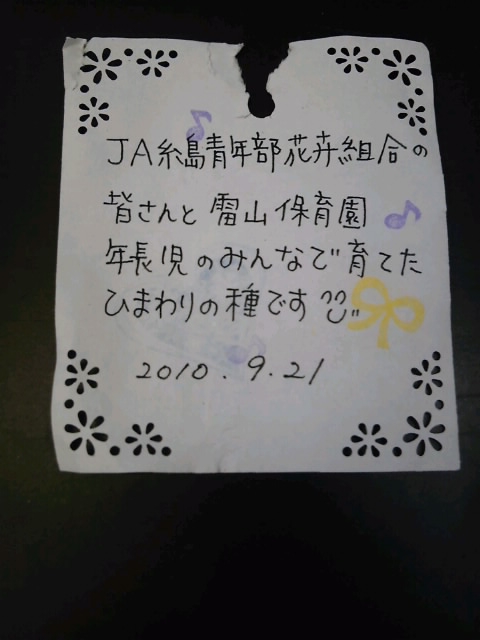 JA糸島青年部花卉組合の
皆さんと雷山保育園
年長児のみんなで育てた
ひまわりの種です
2010.9.21